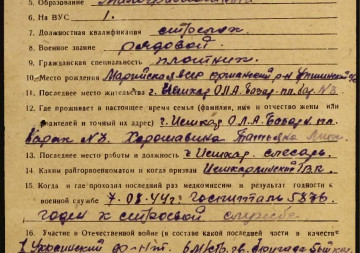 5. Образование
6. На ВУС 1.
7. Должностная квалификация стрелок
8. Военное звание рядовой
9. Гражданская специальность плотник
10. Место рождения Марийская
11. Последнее место жительства г. Йошкар Ола базар. пл. бар №3
12. Где проживает в настоящее время семья (фамилия, имя и отчество жены или
родителей и точный адрес) г. Йошкар Ола Базарн пл.
барак №3. Хорошавина Татьяна
14. Последнее место работы и должность г Йошкар слесарь
14. Каким райгорвоенкоматом и когда призван
15. Когда и где проходил последний раз медкомиссию и результат годности к
военной службе 7.08.44г. Госпиталь 5876.
годен к строевой службе
16. Участие в Отечественной войне (в составе какой последней части в качест